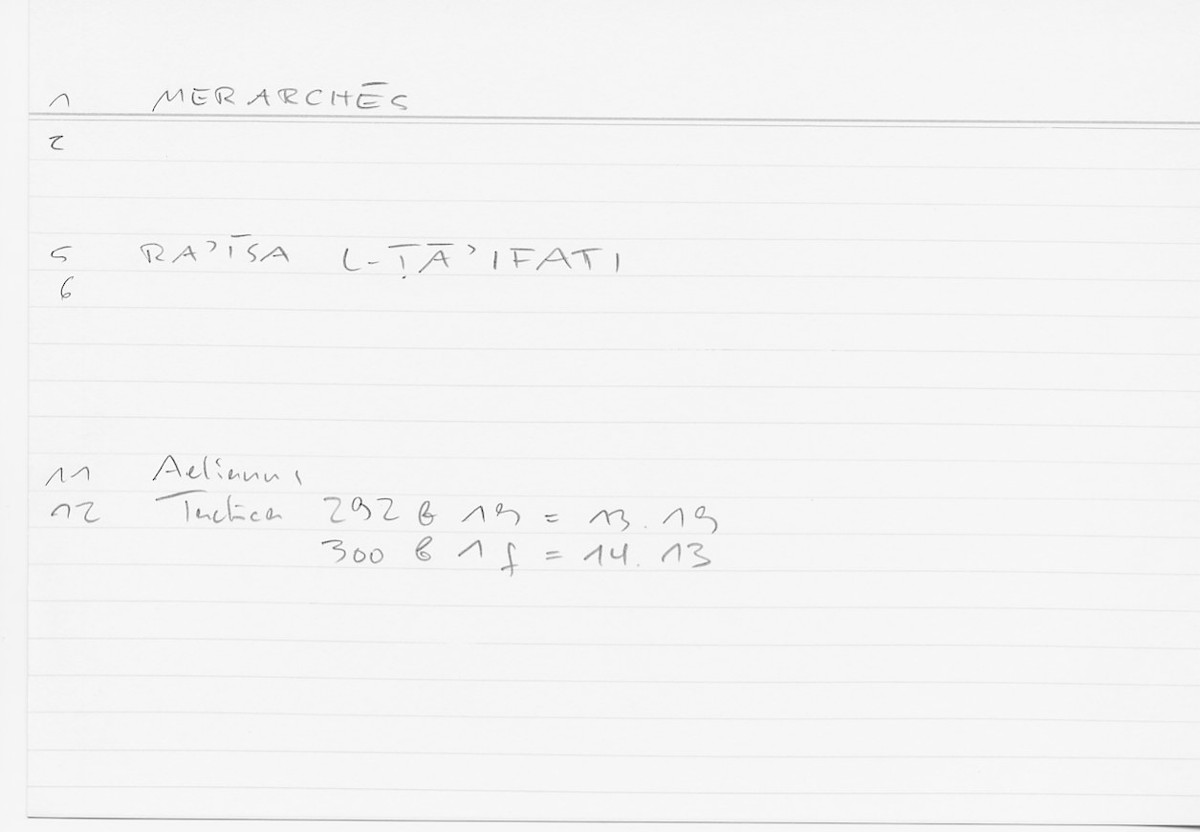 1 MERARCHĒS
2
5 RAʾĪSA L-ṬĀʾIFATI
6
11 Aelianus
12 Tactica 292 b 19 = 13.19
300 b 1 f = 14.13